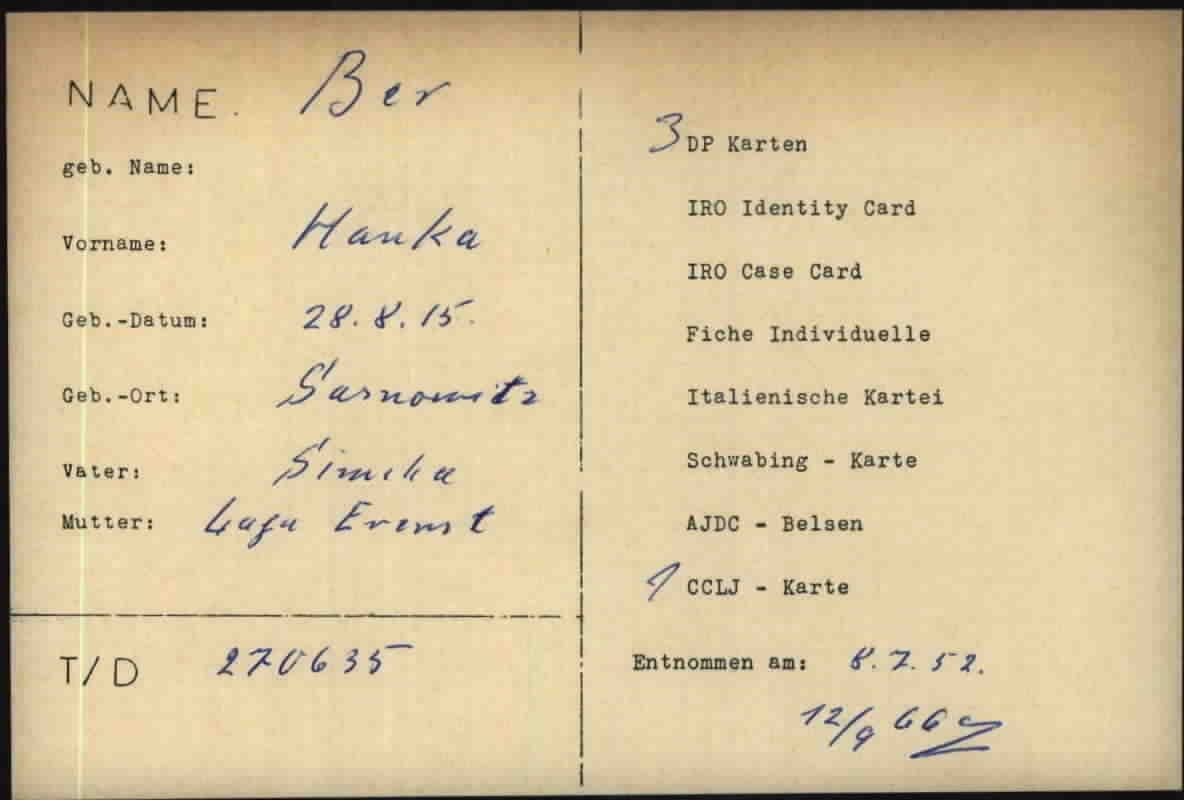 NAME. Ber
geb. Name:
Vorname: Hanka
Geb.-Datum: 28.8.15.
Geb.-Ort: Sarnowitz
Vater: Simcha
Mutter: Laja Erenst
T/D 270635
3 DP Karten
IRO Identity Card
IRO Case Card
Fiche Individuelle
Italienische Kartei
Schwabing - Karte
AJDC - Belsen
1 CCLJ - Karte
Entnommen am: 8.7.52.
12/9 66